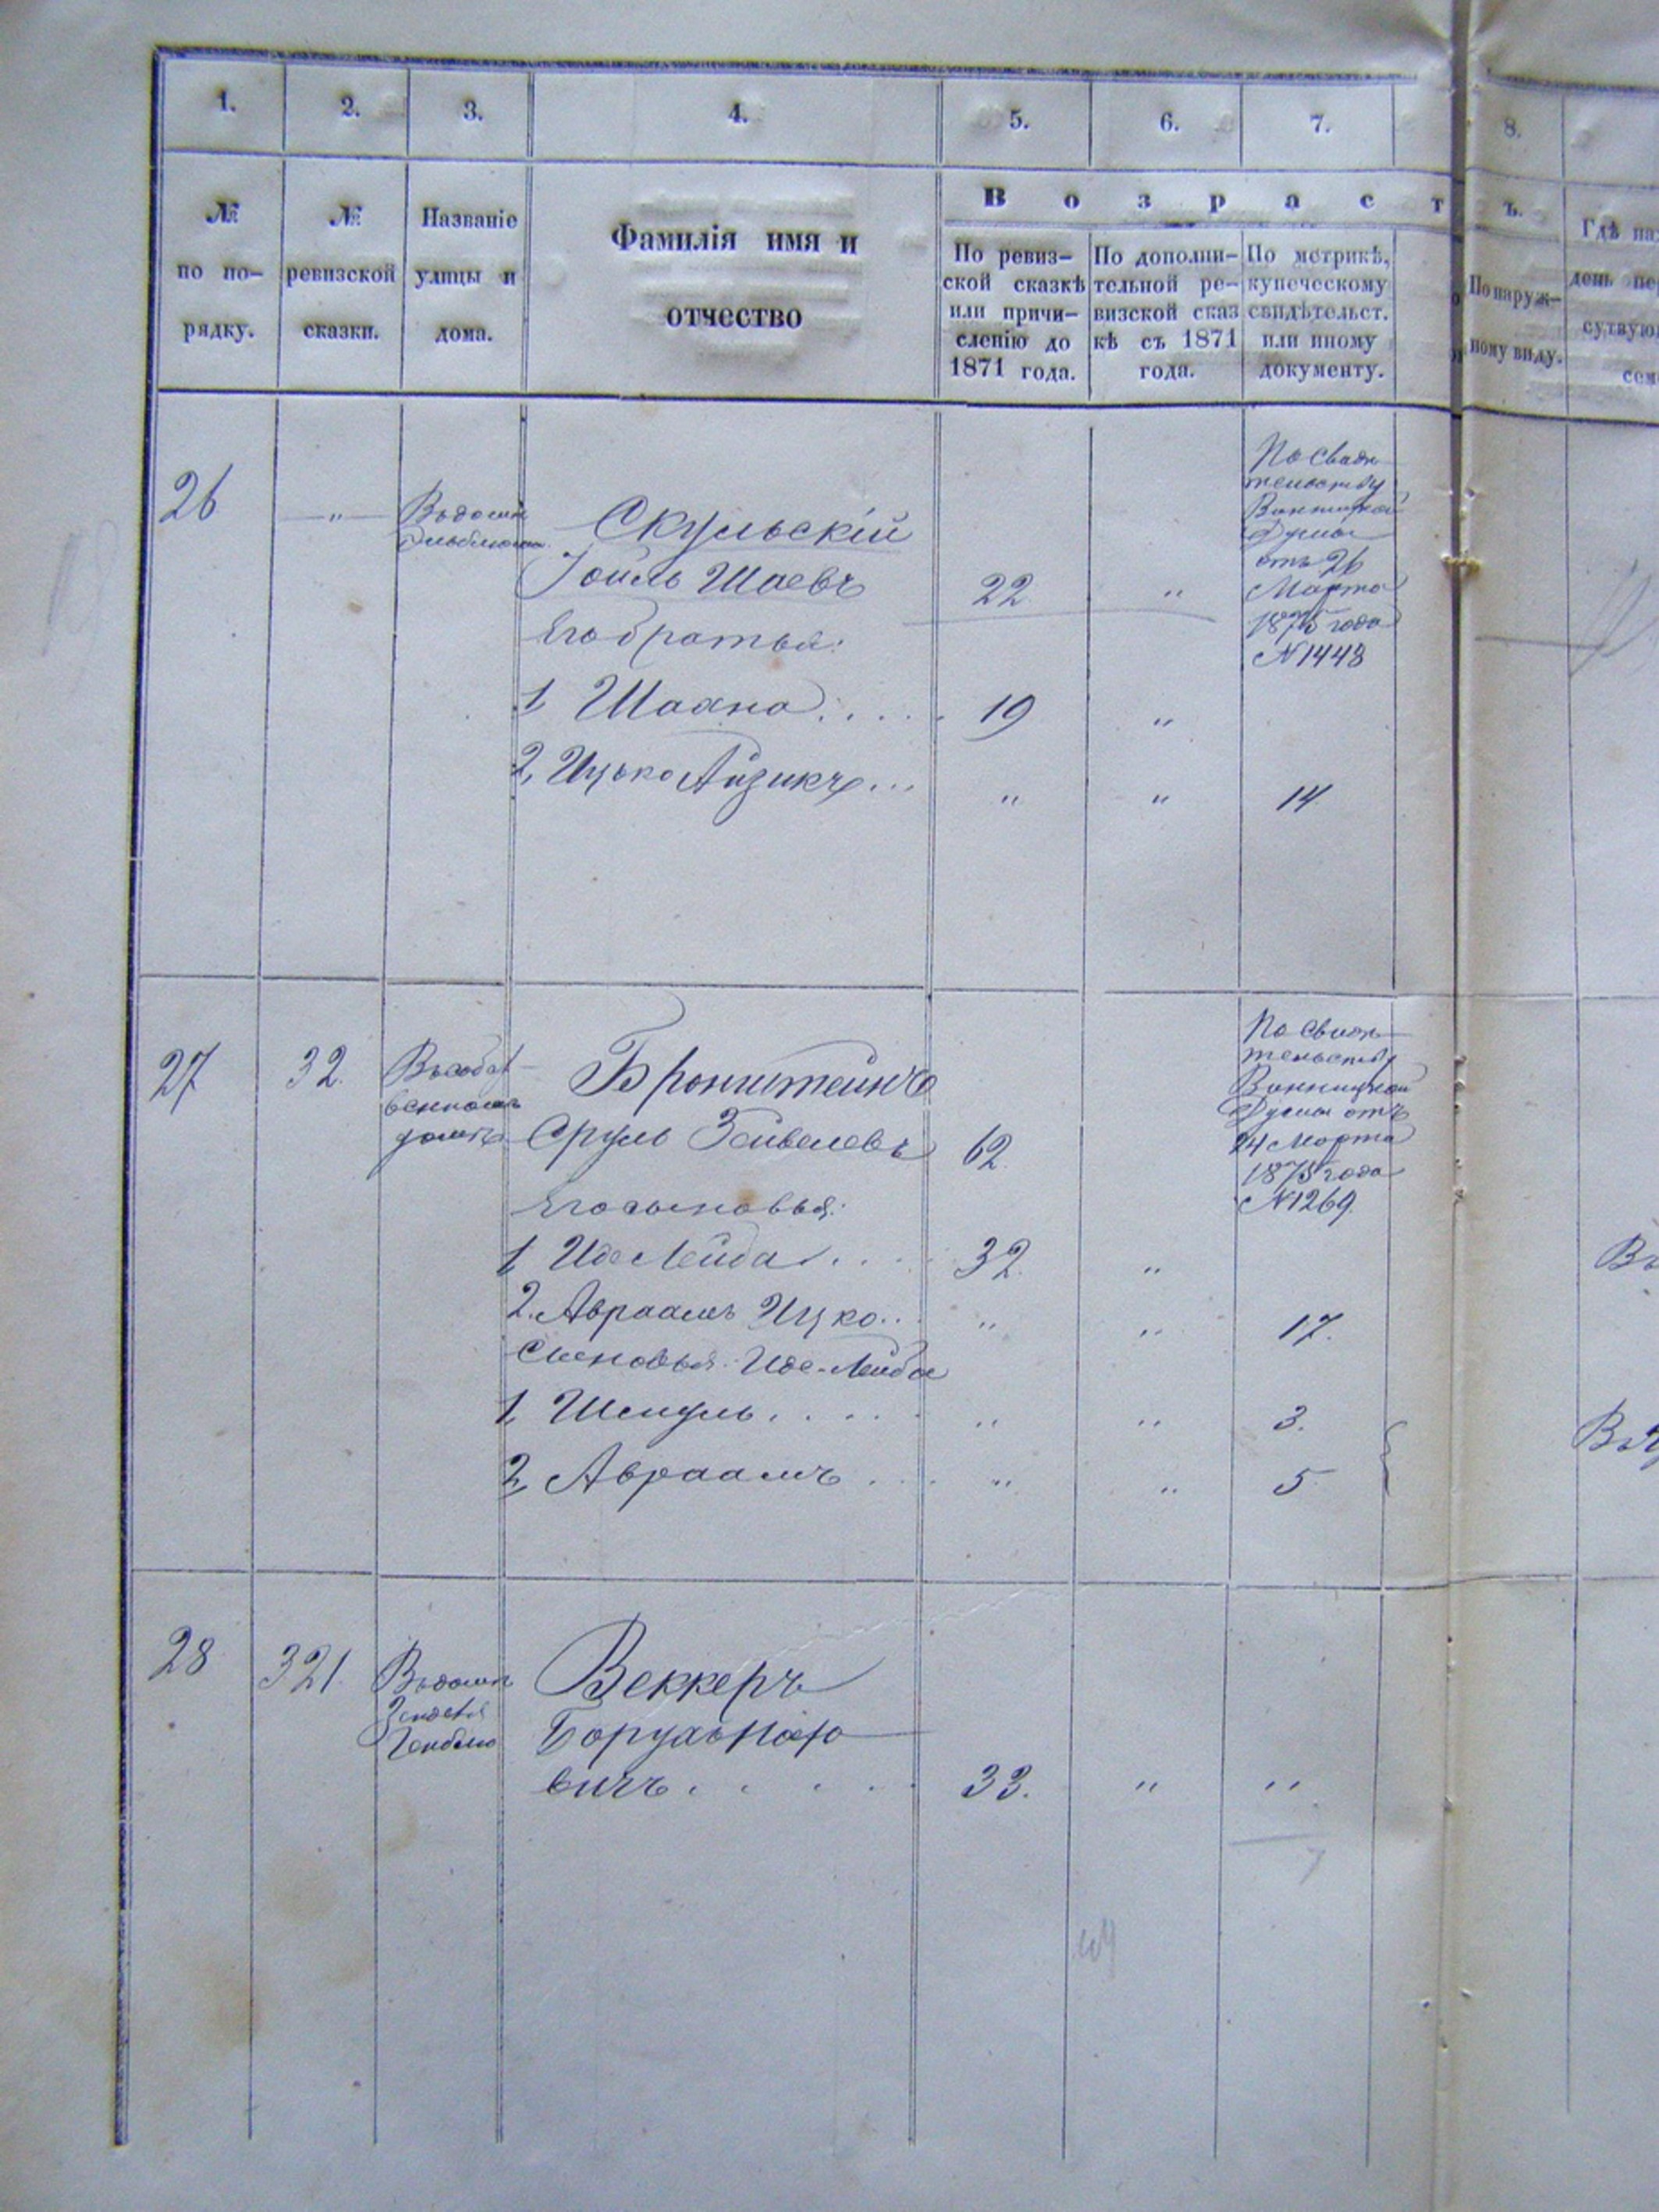 1. 2. 3. 4. 5. 6. 7. 8.
В о з р а с т ъ.
№ по по-рядку.
№ ревизской сказки.
Названіе улицы и дома.
Фамилія имя и отчество
По ревиз-
ской сказкѣ
или причи-
сленію до
1871 года.
По дополни-
тельной ре-
визской сказ
кѣ съ 1871
года.
По метрикѣ,
купеческому
свидѣтельст.
или иному
документу.
По наруж-
ному виду.
Гдѣ
день
26 — " —
Въ домѣ
Скульскій
Іойль Шаевъ 22 "
Его братья:
1, Шахно..... 19 "
2, Ицько Айзикъ... " " 14
По свидѣ
тельству
Винницкой
Думы
отъ 26
Марта
1875 года
№ 1448
27 32.
Въ собст
венномъ
домѣ
Бронштейнъ
Сруль Зейвелевъ 62.
Его сыновья:
1, Иде Лейба.... 32. "
2. Авраамъ Ицко... " " 17.
Сыновья Иде-Лейбы
1, Шмуль..... " " 3.
2, Авраамъ.... " " 5
По свидѣ
тельству
Винницкой
Думы отъ
14 Марта
1875 года
№ 1269.
28 321.
Въ домѣ
Веккеръ
Борухъ
вичъ..... 33. " "